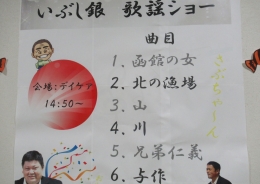 いぶし銀 歌謡ショー
曲目
会場:デイケア
14:50~
1.函館の女
2.北の漁場
3.山
4.川
5.兄弟仁義
6.与作
さぶちゃーん